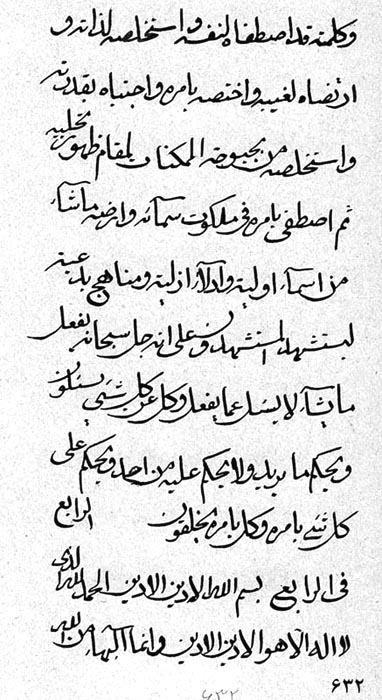 وكلمته قد اصطفاه لنفسه واستخلصه لذاته و
ارتضاه لغيبه واختصه بامره واجتباه بقدرته
واستخلصه من بحبوحة الممكنات لمقام ظهور تجليه
ثم اصطفى بامره في ملكوت سمائه وارضه ماشاء
من اسماء اولية وادلاء ازلية ومناهج بدعية
ليستشهدن المستشهدون على انه جل سبحانه يفعل
مايشاء لايسئل عما يفعل وكل عن كل شيئ يسئلون
ويحكم ما يريد ولا يحكم عليه من احد ويحكم على
كل شيئ بامره وكل بامره يخلقون الرابع
في الرابع بسم الله الادين الادين الحمد لله الذي
لا اله الا هو الادين الادين وانما البهاء من
٦٣٢
٦٣٢